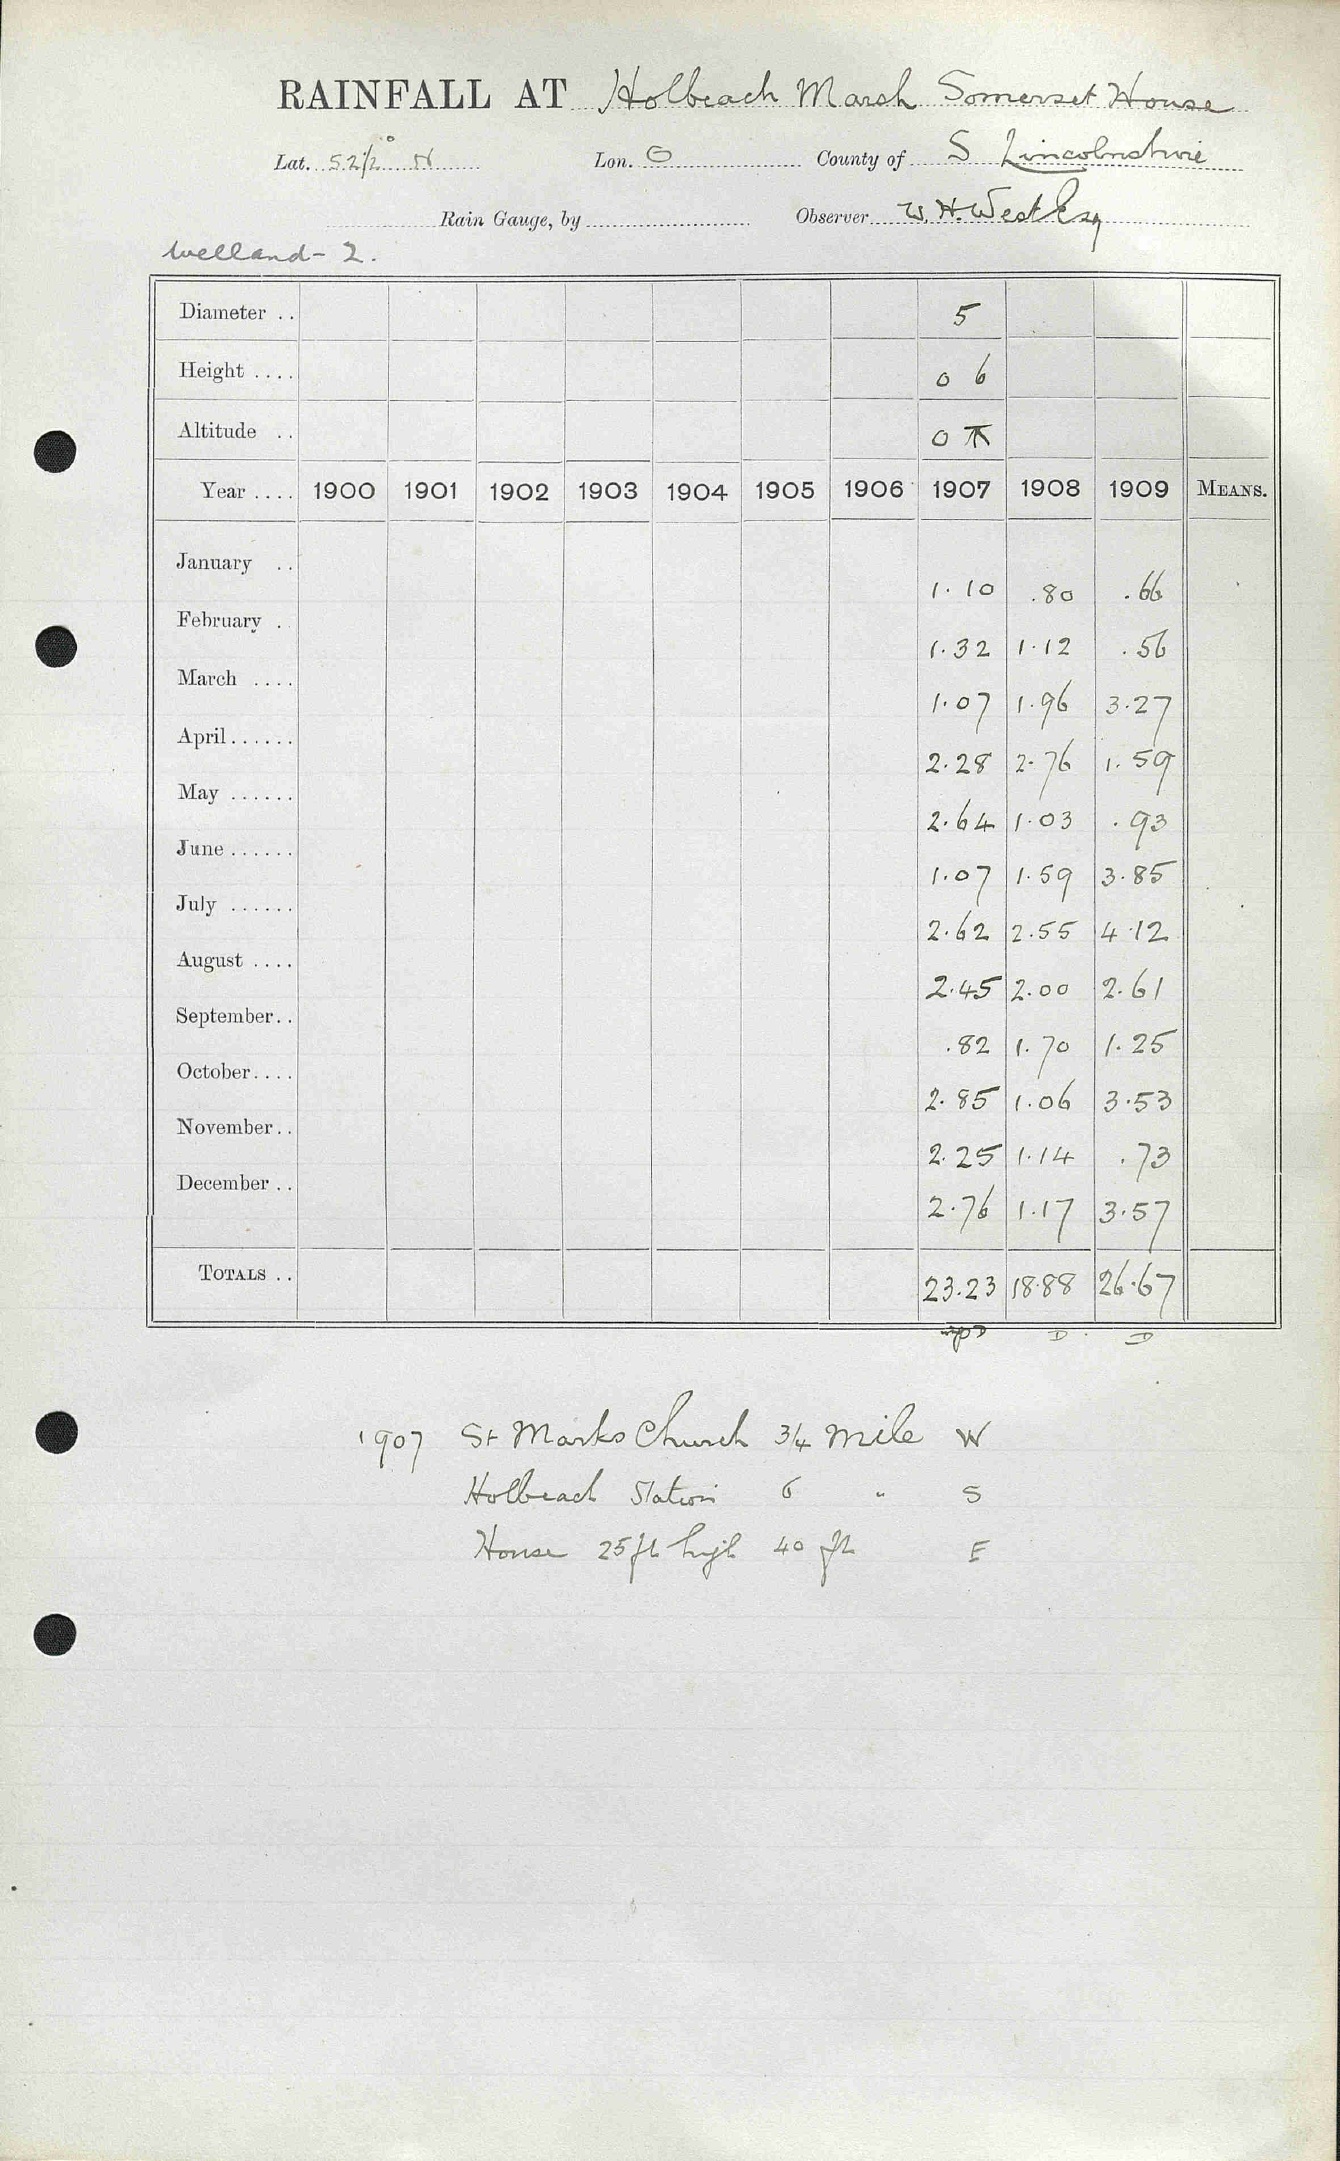 RAINFALL AT Holbeach Marsh Somerset House
Lat. 52½° N Lon. 0 County of S Lincolnshire
Rain Gauge, by Observer W. H. West Esq
Welland - 2.
Diameter .. 5
Height .... 0 6
Altitude .. 0
Year .... 1900 1901 1902 1903 1904 1905 1906 1907 1908 1909 MEANS.
January ..
1.10 .80 .66
February .
1.32 1.12 .56
March ....
1.07 1.96 3.27
April ......
2.28 2.76 1.59
May ......
2.64 1.03 .93
June ......
1.07 1.59 3.85
July ......
2.62 2.55 4.12
August ....
2.45 2.00 2.61
September..
.82 1.70 1.25
October....
2.85 1.06 3.53
November..
2.25 1.14 .73
December ..
2.76 1.17 3.57
TOTALS .. 23.23 18.88 26.67
D D
1907 St Marks Church ¾ mile W
Holbeach Station 6 " S
House 25 ft high 40 ft E